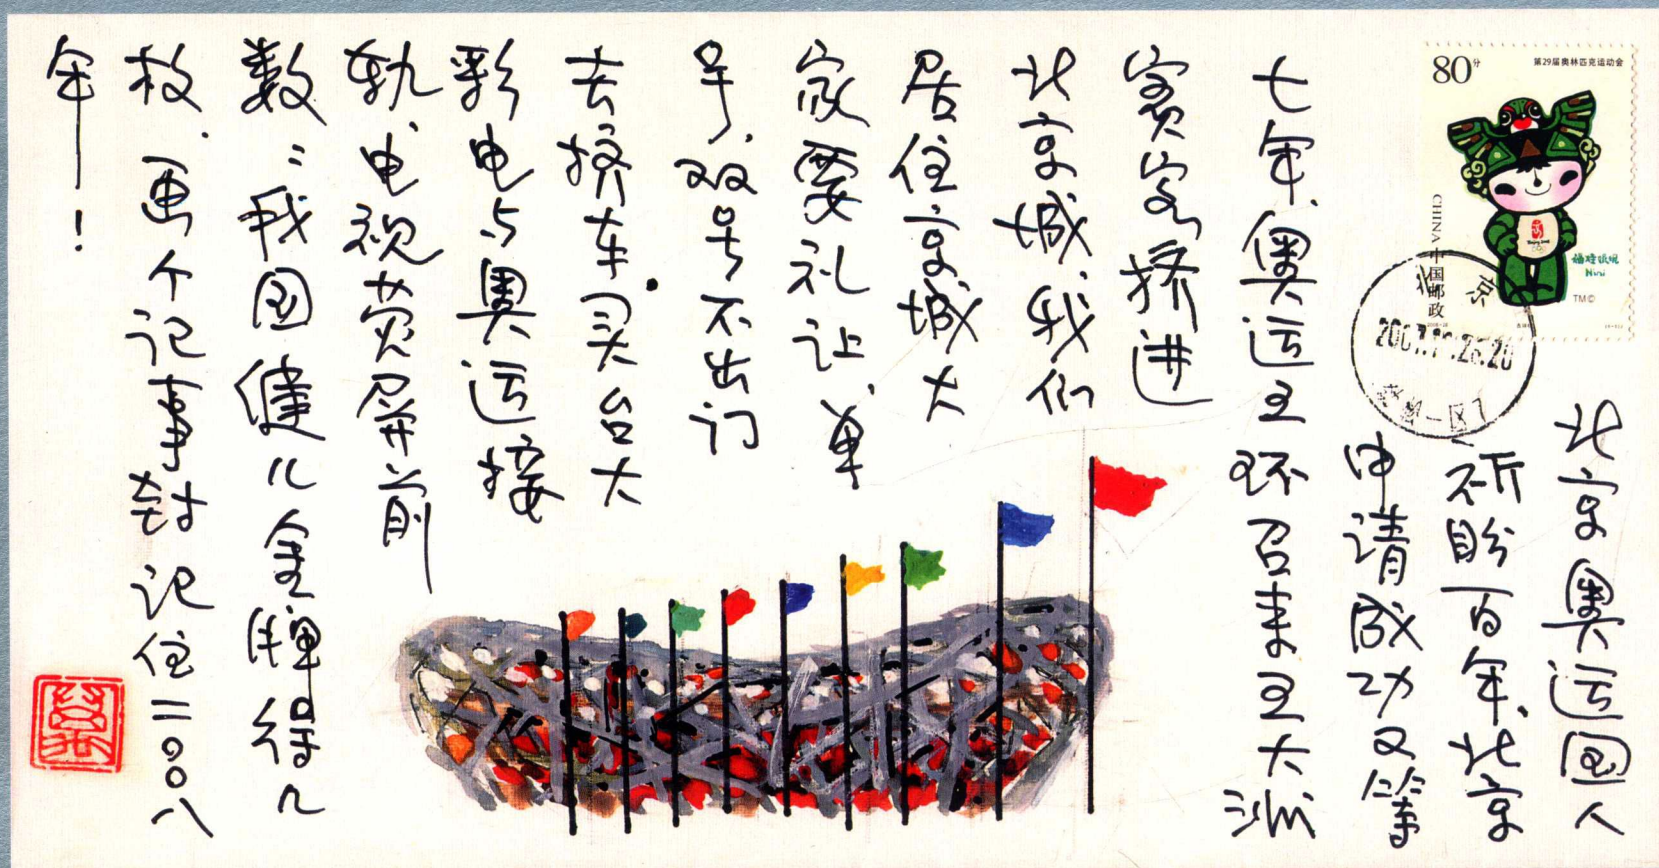 80分
第29届奥林匹克运动会
CHINA 中国邮政
福娃妮妮
Nini
TM©
北京
北京奥运国人
祈盼百年、北京
申请成功又等
七年、奥运五环召来五大洲
宾客挤进
北京城、我们
居住京城大
家要礼让、单
号、双号不出门
去挤车.买台大
彩电与奥运接
轨、电视荧屏前
数〻我国健儿金牌得几
枚、画个记事封记住二〇〇八
年——!